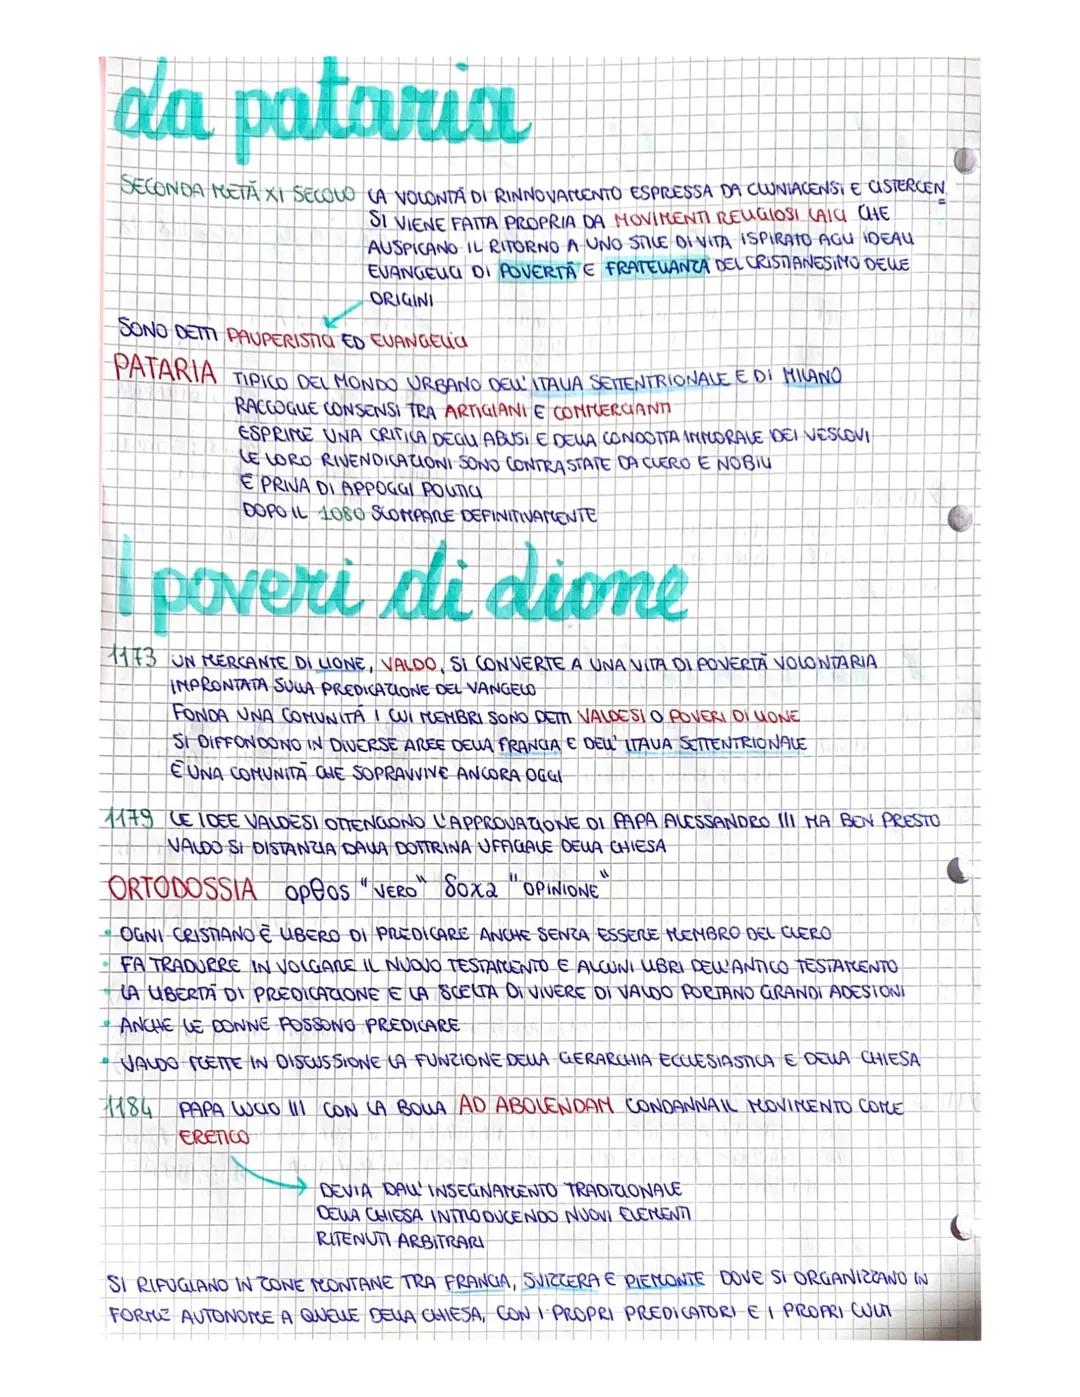 da pataria
SECONDA METÀ XI SECOLO LA VOLONTÀ DI RINNOVAMENTO ESPRESSA DA CLUNIACENSI E CISTERCEN
SI VIENE FATTA PROPRIA DA MOVIMENTI RELIGIOSI LAICI CHE
AUSPICANO IL RITORNO A UNO STILE DI VITA ISPIRATO AGLI IDEALI
EVANGELICI DI POVERTÀ E FRATELLANZA DEL CRISTIANESIMO DELLE
ORIGINI
SONO DETTI PAUPERISTICI ED EVANGELICI
PATARIA TIPICO DEL MONDO URBANO DELL'ITALIA SETTENTRIONALE E DI MILANO
RACCOGLIE CONSENSI TRA ARTIGIANI E COMMERCIANTI
ESPRIME UNA CRITICA DEGLI ABUSI E DELLA CONDOTTA IMMORALE DEI VESCOVI
LE LORO RIVENDICAZIONI SONO CONTRASTATE DA CLERO E NOBILI
È PRIVA DI APPOGGI POLITICI
DOPO IL 1080 SCOMPARE DEFINITIVAMENTE
I poveri di lione
1173 UN MERCANTE DI LIONE, VALDO, SI CONVERTE A UNA VITA DI POVERTÀ VOLONTARIA
IMPRONTATA SULLA PREDICAZIONE DEL VANGELO
FONDA UNA COMUNITÀ I CUI MEMBRI SONO DETTI VALDESI O POVERI DI LIONE
SI DIFFONDONO IN DIVERSE AREE DELLA FRANCIA E DELL'ITALIA SETTENTRIONALE
È UNA COMUNITÀ CHE SOPRAVVIVE ANCORA OGGI
1179 LE IDEE VALDESI OTTENGONO L'APPROVAZIONE DI PAPA ALESSANDRO III MA BEN PRESTO
VALDO SI DISTANZIA DALLA DOTTRINA UFFICIALE DELLA CHIESA
ORTODOSSIA ορθos "VERO" δοxa "OPINIONE"
• OGNI CRISTIANO È LIBERO DI PREDICARE ANCHE SENZA ESSERE MEMBRO DEL CLERO
• FA TRADURRE IN VOLGARE IL NUOVO TESTAMENTO E ALCUNI LIBRI DELL'ANTICO TESTAMENTO
• LA LIBERTÀ DI PREDICAZIONE E LA SCELTA DI VIVERE DI VALDO PORTANO GRANDI ADESIONI
• ANCHE LE DONNE POSSONO PREDICARE
• VALDO METTE IN DISCUSSIONE LA FUNZIONE DELLA GERARCHIA ECCLESIASTICA E DELLA CHIESA
1184 PAPA LUCIO III CON LA BOLLA AD ABOLENDAM CONDANNA IL MOVIMENTO COME
ERETICO
DEVIA DALL'INSEGNAMENTO TRADIZIONALE
DELLA CHIESA INTRODUCENDO NUOVI ELEMENTI
RITENUTI ARBITRARI
SI RIFUGIANO IN ZONE MONTANE TRA FRANCIA, SVIZZERA E PIEMONTE DOVE SI ORGANIZZANO IN
FORME AUTONOME A QUELLE DELLA CHIESA, CON I PROPRI PREDICATORI E I PROPRI CULTI